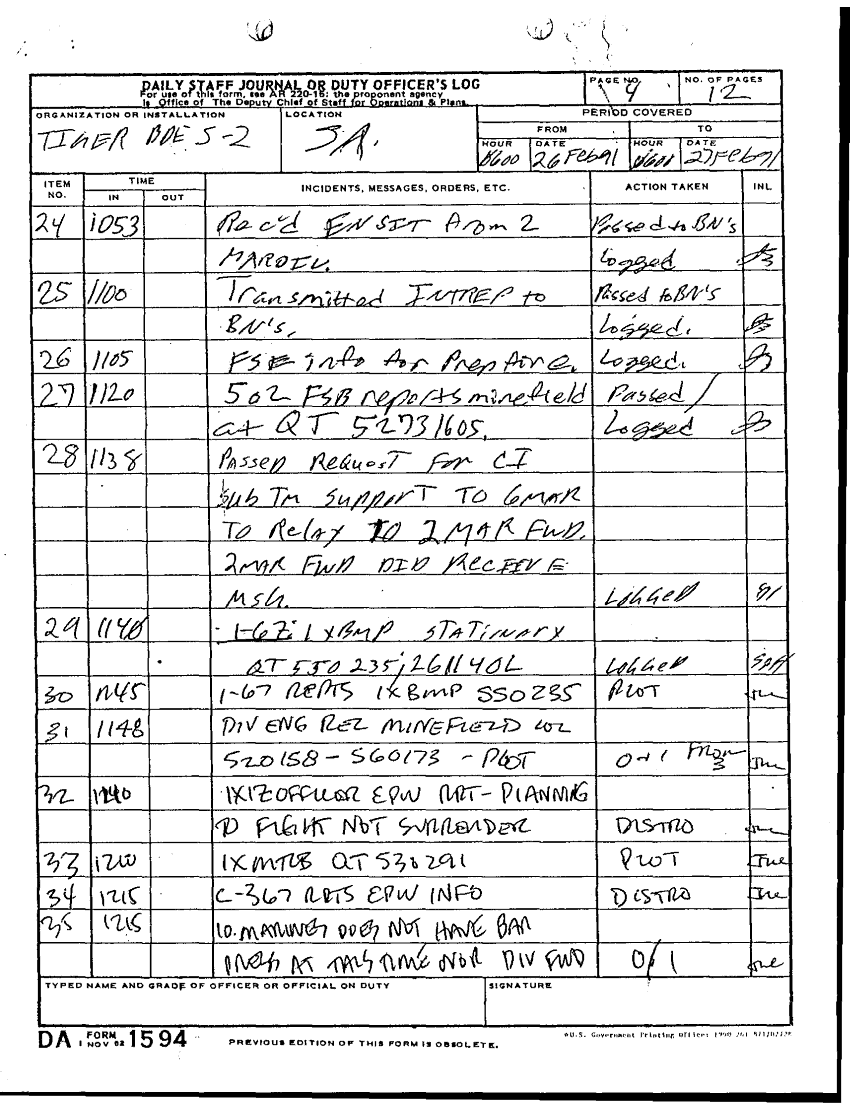 DAILY STAFF JOURNAL OR DUTY OFFICER'S LOG
For use of this form, see AR 220-15; the proponent agency
is Office of The Deputy Chief of Staff for Operations & Plans.
PAGE NO. 9
NO. OF PAGES 12
ORGANIZATION OR INSTALLATION
TIGER BDE S-2
LOCATION
S.A.
PERIOD COVERED
FROM TO
HOUR DATE HOUR DATE
0600 26 Feb 91 0600 27 Feb 91
ITEM NO. TIME IN OUT INCIDENTS, MESSAGES, ORDERS, ETC. ACTION TAKEN INL
24 1053 Rec'd ENSIT from 2 Passed to BN's
MARDIV. Logged
25 1100 Transmitted INTREP to Passed to BN's
BN's, Logged.
26 1105 FSE info for Prep fire. Logged.
27 1120 502 FSB reports minefield Passed /
at QT 52731605. Logged
28 1138 PASSED REQUEST FOR CI
SUB TM SUPPORT TO 6MAR
TO RELAY TO 2 MAR FWD.
2MAR FWD DID RECEIVE
MSG. LOGGED
29 1140 1-67: 1 x BMP STATINARY
QT 550 235; 261140L LOGGED
30 1145 1-67 REPTS 1XBMP 550235 PLOT
31 1148 DIV ENG REL MINEFIELD LOC
520158 - 560173 - PLOT O+1 FROM 3
32 1X OFFICER EPW RPT - PLANNING
TO FIGHT NOT SURRENDER DISTRO
33 1210 1XMTLB QT 530291 PLOT
34 1215 C-367 RPTS EPW INFO DISTRO
35 1215 MARINES DOES NOT HAVE
AT THIS TIME NOR DIV FWD O/1
TYPED NAME AND GRADE OF OFFICER OR OFFICIAL ON DUTY
SIGNATURE
DA FORM 1 NOV 62 1594
PREVIOUS EDITION OF THIS FORM IS OBSOLETE.
U.S. Government Printing Office: